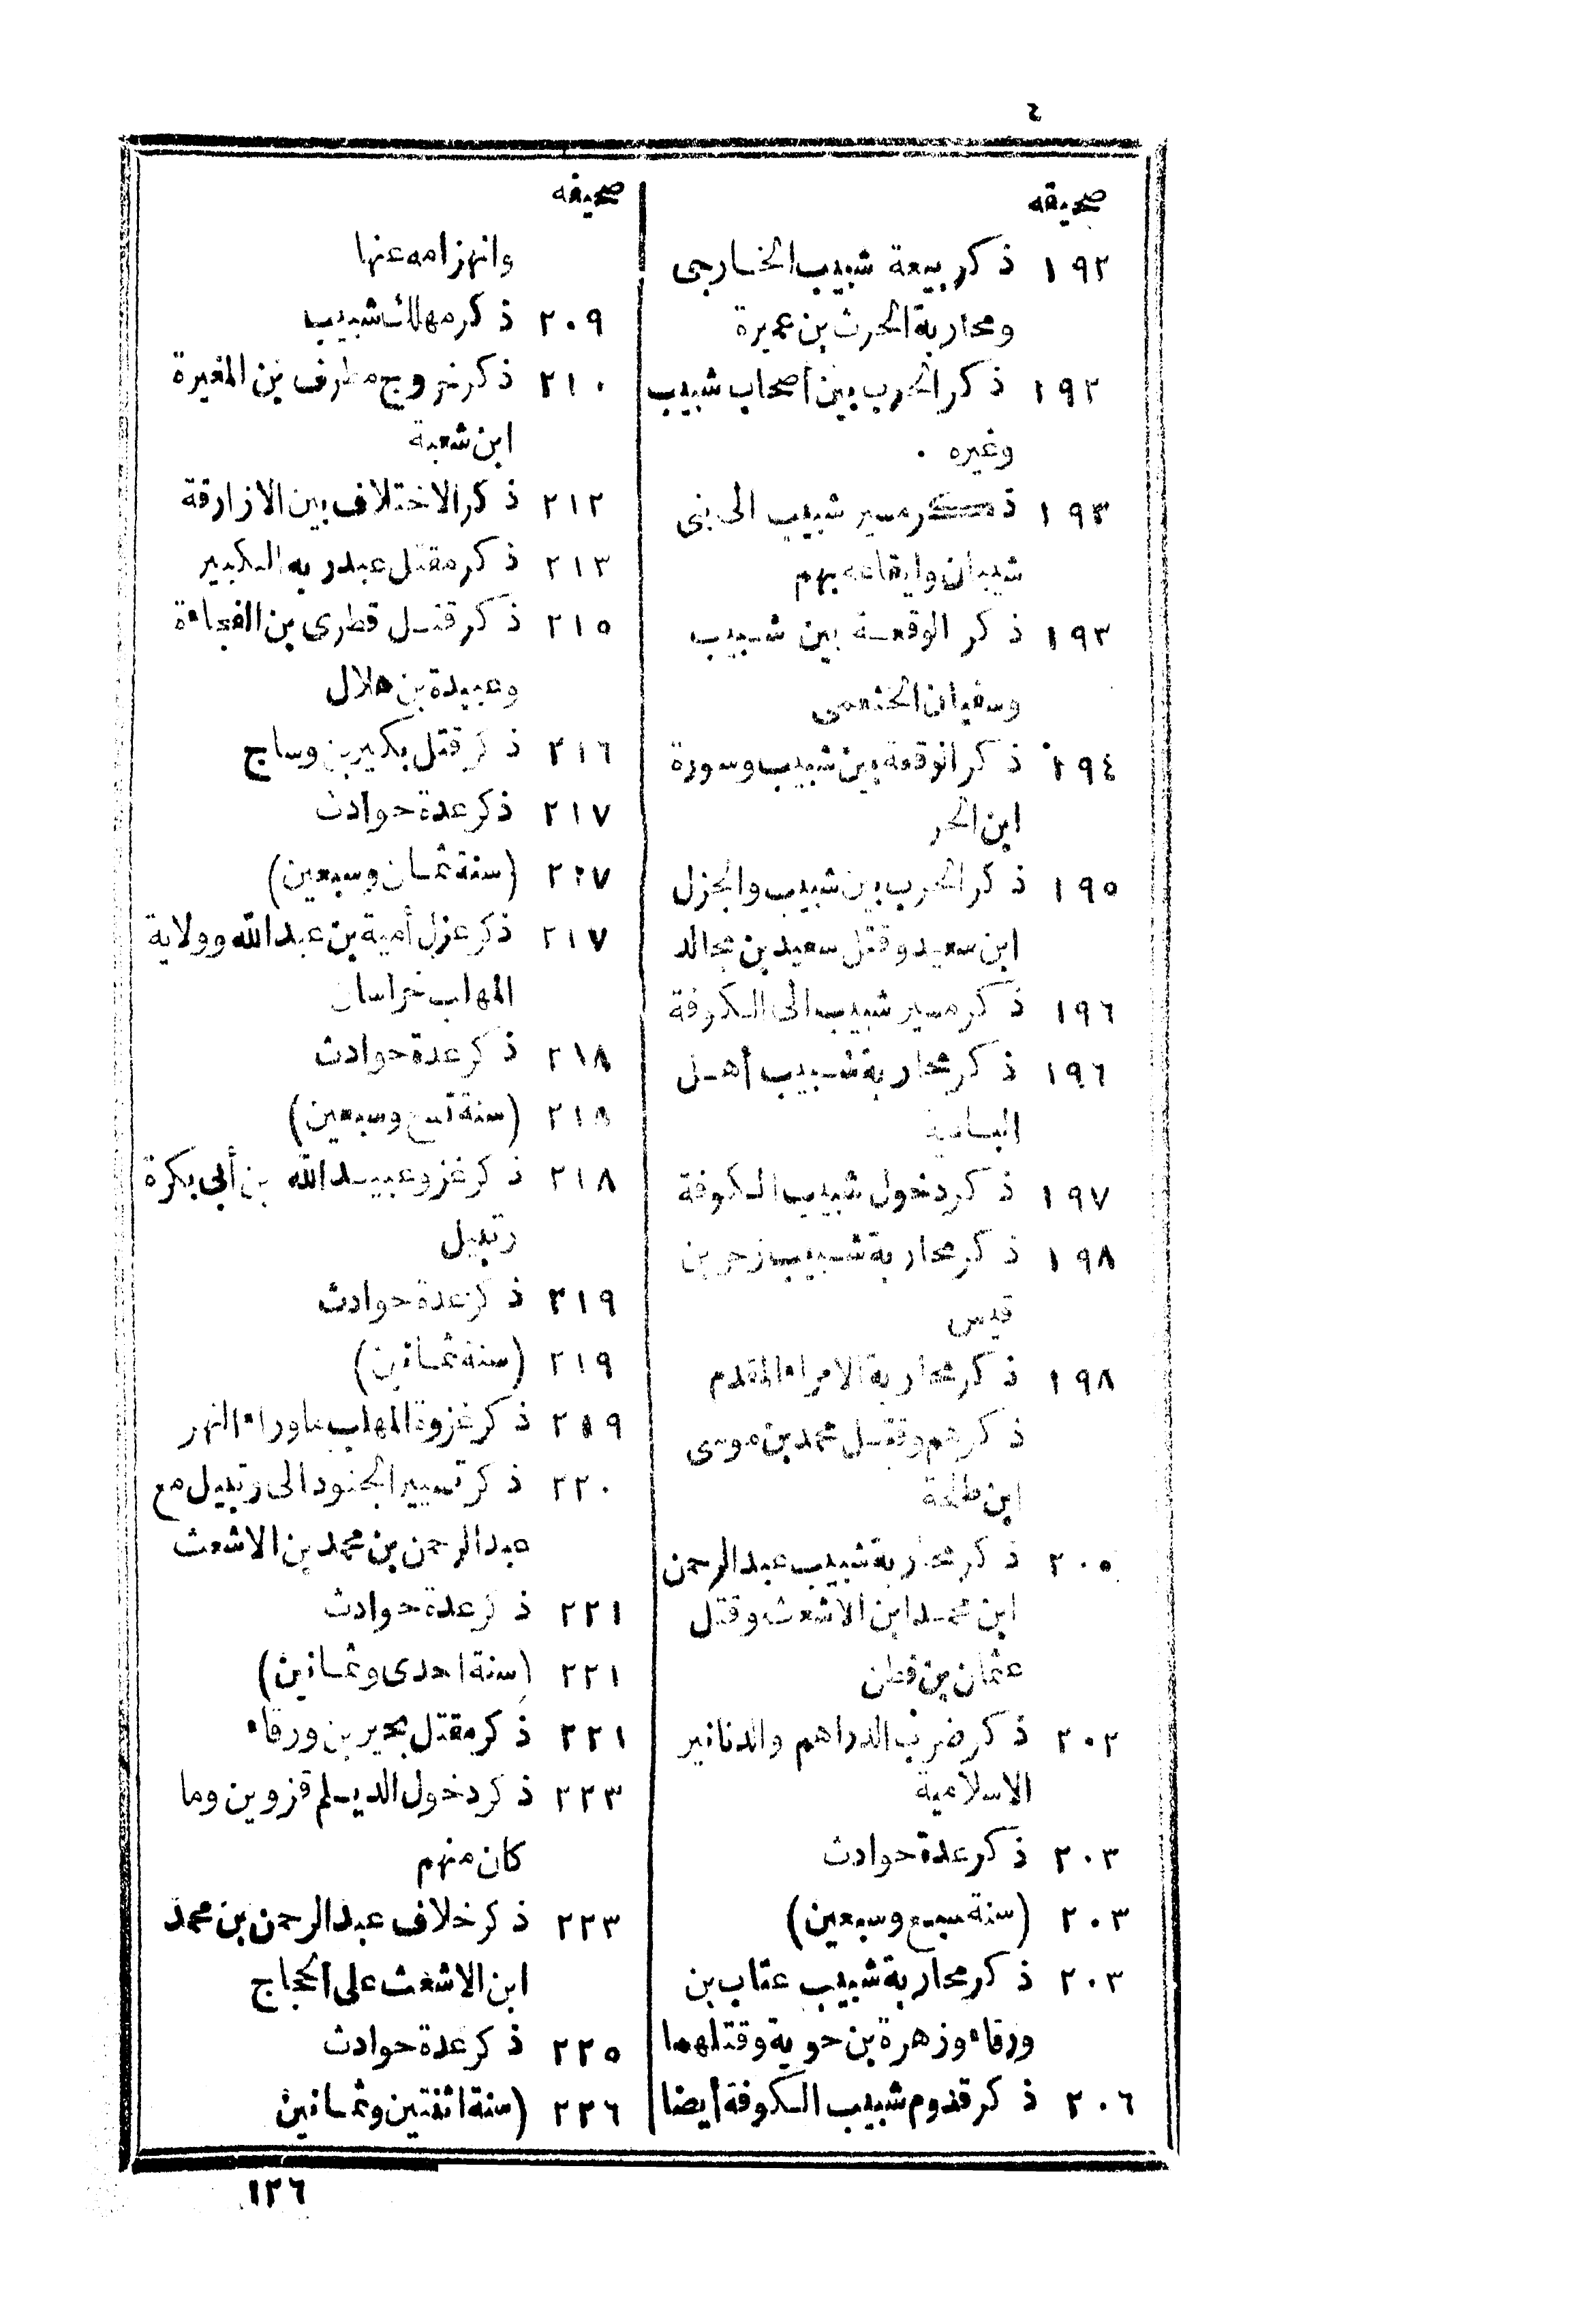 ٤
صحيفة
١٩٢ ذكر بيعة شبيب الخارجى
ومحاربة الحرث بن عميرة
١٩٢ ذكر الحرب بين أصحاب شبيب
وغيره
١٩٣ ذكر مسير شبيب الى بنى
شيبان وايقاعه بهم
١٩٣ ذكر الوقعة بين شبيب
وسفيان الخثعمى
١٩٤ ذكر الوقعة بين شبيب وسورة
ابن الحر
١٩٥ ذكر الحرب بين شبيب والجزل
ابن سعيد وقتل سعيد بن مجالد
١٩٦ ذكر مسير شبيب الى الكوفة
١٩٦ ذكر محاربة شبيب أهل
البادية
١٩٧ ذكر دخول شبيب الكوفة
١٩٨ ذكر محاربة شبيب زحر بن
قيس
١٩٨ ذكر محاربة الامراء المقدم
ذكرهم وقتل محمد بن موسى
ابن طلحة
٢٠٠ ذكر محاربة شبيب عبد الرحمن
ابن محمد ابن الاشعث وقتل
عثمان بن قطن
٢٠٢ ذكر ضرب الدراهم والدنانير
الاسلامية
٢٠٣ ذكر عدة حوادث
٢٠٣ (سنة سبع وسبعين)
٢٠٣ ذكر محاربة شبيب عتاب بن
ورقاء وزهرة بن حوية وقتلهما
٢٠٦ ذكر قدوم شبيب الكوفة أيضا
صحيفه
وانهزامه عنها
٢٠٩ ذكر مهلك شبيب
٢١٠ ذكر خروج مطرف بن المغيرة
ابن شعبة
٢١٢ ذكر الاختلاف بين الازارقة
٢١٣ ذكر مقتل عبد ربه الكبير
٢١٥ ذكر قتل قطرى بن الفجاءة
وعبيدة بن هلال
٢١٦ ذكر قتل بكير بن وساج
٢١٧ ذكر عدة حوادث
٢١٧ (سنة ثمان وسبعين)
٢١٧ ذكر عزل أمية بن عبد الله وولاية
المهلب خراسان
٢١٨ ذكر عدة حوادث
٢١٨ (سنة تسع وسبعين)
٢١٨ ذكر غزو عبيد الله بن أبى بكرة
رتبيل
٢١٩ ذكر عدة حوادث
٢١٩ (سنة ثمانين)
٢١٩ ذكر غزوة المهلب ماوراء النهر
٢٢٠ ذكر تسيير الجنود الى رتبيل مع
عبد الرحمن بن محمد بن الاشعث
٢٢١ ذكر عدة حوادث
٢٢١ (سنة احدى وثمانين)
٢٢١ ذكر مقتل بحير بن ورقاء
٢٢٣ ذكر دخول الديلم قزوين وما
كان منهم
٢٢٣ ذكر خلاف عبد الرحمن بن محمد
ابن الاشعث على الحجاج
٢٢٥ ذكر عدة حوادث
٢٢٦ (سنة اثنتين وثمانين
١٢٦